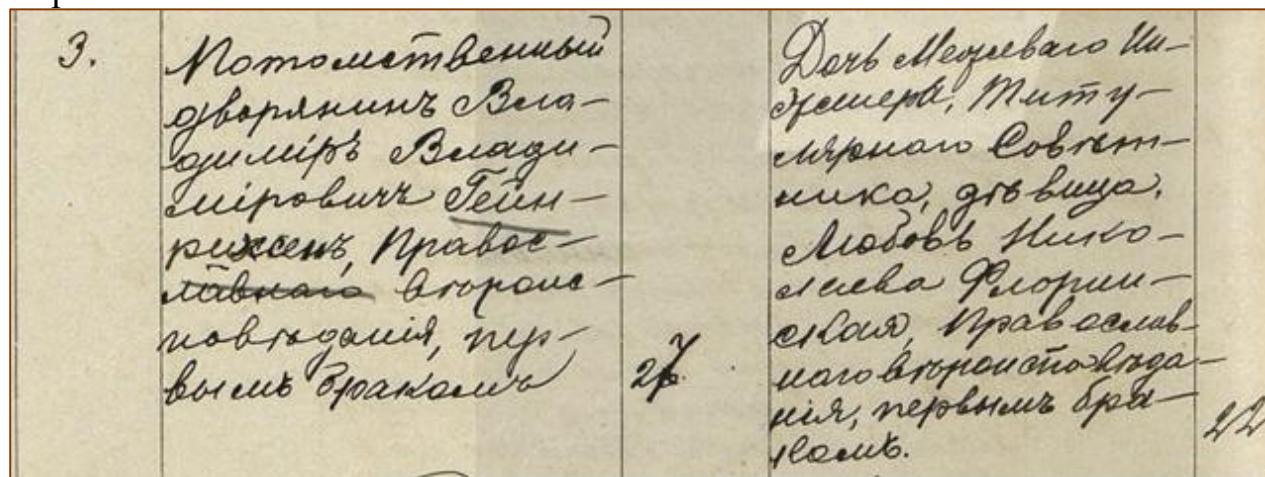 3.
Потомственный
дворянинъ Вла-
димiръ Влади-
мiровичъ Гейн-
рихсенъ, Правос-
лавнаго вѣроис-
повѣданiя, пер-
вымъ бракомъ
27
Дочь Межеваго Ин-
женера, Титу-
лярнаго Совѣт-
ника, дѣвица,
Любовь Нико-
лаева Флорин-
ская, Православ-
наго вѣроисповѣда-
нiя, первымъ бра-
комъ.
22